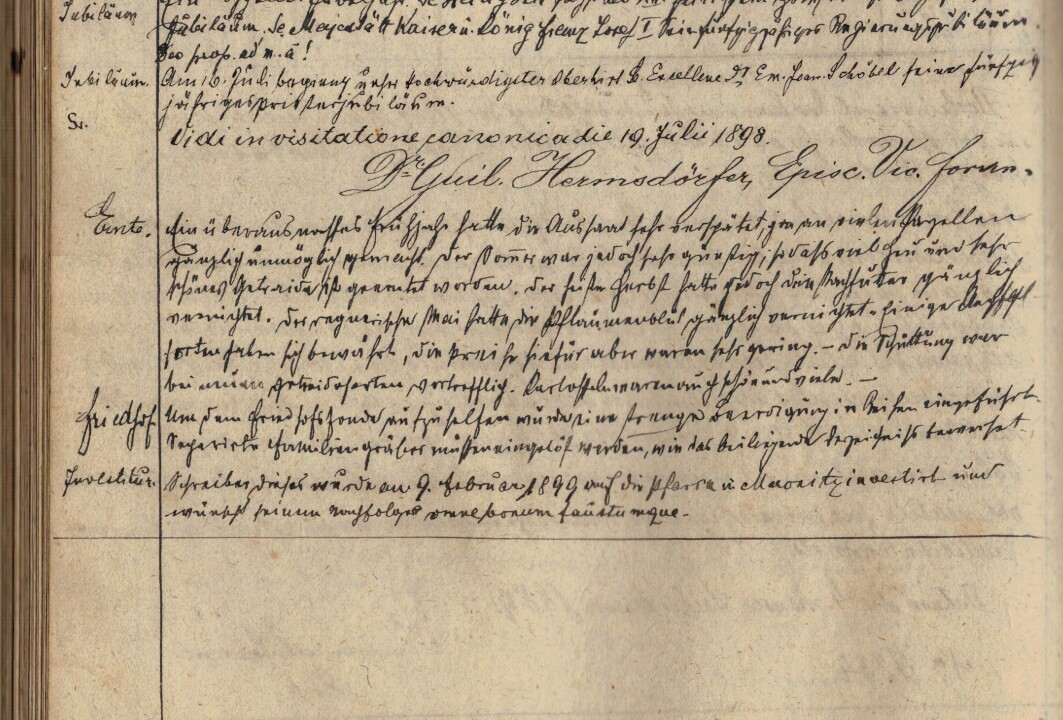 Jubiläum
Jubiläum Se Majestätt Kaiser u. König Franz Josef I Sein fünfzigjähriges Regierungsjubiläum.
Deo prop. ad m. a!
Jubiläum. Am 16. Juli begieng unser hochwürdigster Oberhirt S. Excellenz Dr Em. Joan. Schöbel seine fünfzig
jähriges priesterjubiläum.
Vidi in visitatione canonica die 19. Julii 1898.
Dr. Guil. Hermsdörfer, Episc. Vic. foran.
Ernte. Ein überaus nasses Frühjahr hatte die Aussaat sehr verspätet, ja an vielen Parzellen
gänzlich unmöglich gemacht. Der Sommer war jedoch sehr günstig, so dass viel Heu und sehr
schönes Getraide ist geerntet worden. Der Herbst hatte jedoch das Nachfutter gänzlich
vernichtet. Der regnerische Mai hatte die Pflaumenblüt gänzlich vernichtet. Einige Aepfel
sorten haben sich bewährt, die Preise hiefür aber waren sehr gering. – Die Schüttung war
bei Getreidesorten vortrefflich. Kartoffeln waren auch schön und viele. –
Friedhof Um dem Friedhofsfonde aufzuhelfen wurde eine strenge Beerdigung in Reihen eingeführt.
Separirte Familiengräber müssen eingelöst werden, wie das beiliegende Verzeichniss beweiset.
Investitur. Schreiber dieses wurde am 9. Februar 1899 auf die Pfarre in investirt und
wünscht seinem Nachfolger omne bonum faustumque.